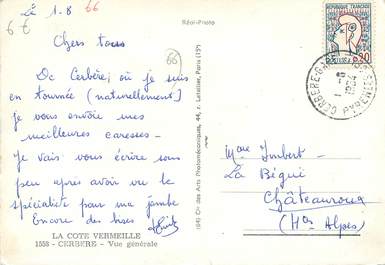 Le 1-8 66
6€
Chers tous
66
De Cerbère, où je suis
en tournée (naturellement)
je vous envoie mes
meilleures caresses -
Je vais vous écrire sous
peu après avoir vu le
spécialiste pour ma jambe
Encore des bises
LA COTE VERMEILLE
1558 - CERBERE - Vue générale
Réal-Photo
(64) Cie des Arts Photomécaniques, 44, r. Letellier, Paris (15e)
REPUBLIQUE FRANÇAISE
POSTES
0,20
CERBERE-GARE
1-8
1964
PYRENEES
Mme Imbert
La Bégüi
Châteauroux
(Htes Alpes)